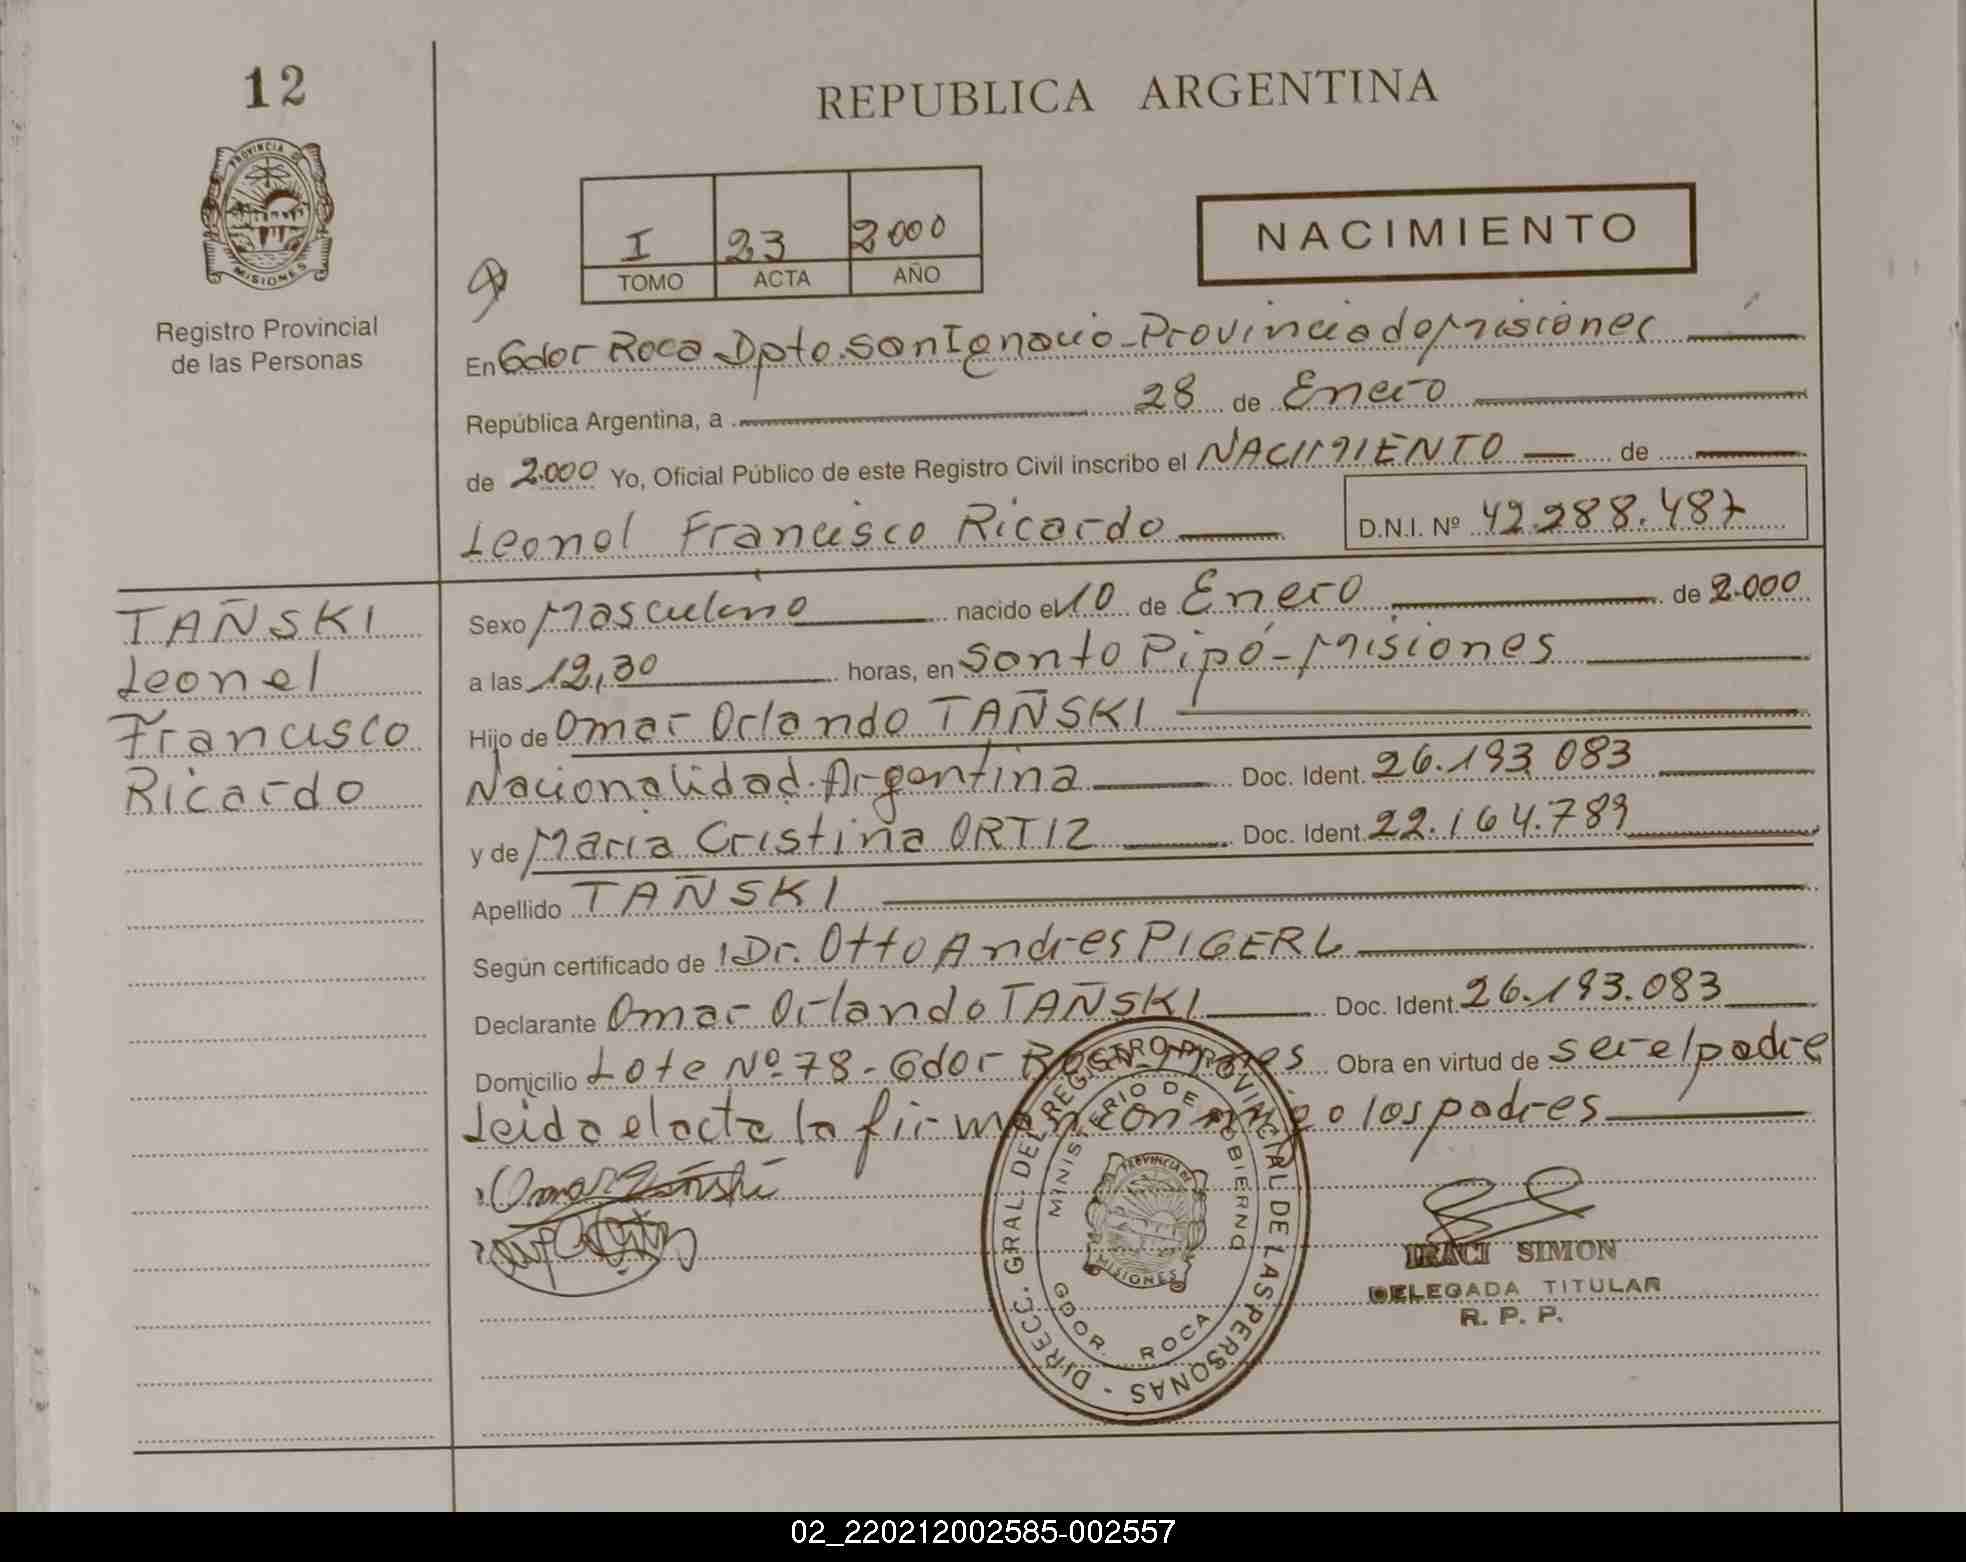 12
REPUBLICA ARGENTINA
PROVINCIA DE
MISIONES
I 23 2000
TOMO ACTA AÑO
NACIMIENTO
Registro Provincial
de las Personas
En Gdor Roca Dpto. San Ignacio - Provincia de Misiones
República Argentina, a 28 de Enero
de 2.000 Yo, Oficial Público de este Registro Civil inscribo el NACIMIENTO de
Leonel Francisco Ricardo D.N.I. Nº 42.288.487
TAÑSKI
Leonel
Francisco
Ricardo
Sexo Masculino nacido el 10 de Enero de 2.000
a las 12,30 horas, en Santo Pipó - Misiones
Hijo de Omar Orlando TAÑSKI
Nacionalidad Argentina Doc. Ident. 26.193.083
y de Maria Cristina ORTIZ Doc. Ident. 22.164.789
Apellido TAÑSKI
Según certificado de Dr. Otto Andres PIGERL
Declarante Omar Orlando TAÑSKI Doc. Ident. 26.193.083
Domicilio Lote Nº 78 - Gdor Roca Mnes Obra en virtud de ser el padre
Leida el acta la firman conmigo los padres
Omar Tañski
DIRECC. GRAL DEL REGISTRO PROVINCIAL DE LAS PERSONAS -
MINISTERIO DE GOBIERNO
PROVINCIA DE
MISIONES
GDOR. ROCA
IRACI SIMON
DELEGADA TITULAR
R. P. P.
02_220212002585-002557